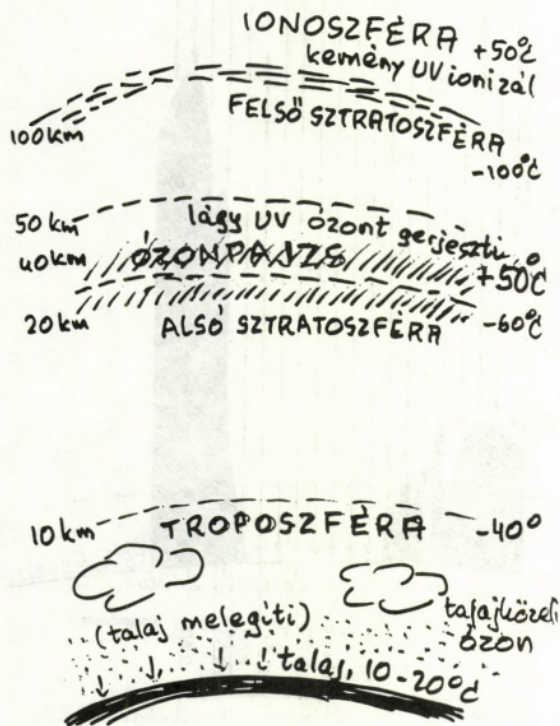 IONOSZFÉRA +50°C
kemény UV ionizál
100 km
FELSŐ SZTRATOSZFÉRA
-100°C
50 km
lágy UV ózont gerjeszti
40 km
ÓZONPAJZS
+50°C
20 km
ALSÓ SZTRATOSZFÉRA
-60°C
10 km
TROPOSZFÉRA
-40°
(talaj melegíti)
talajközeli
ózon
talaj, 10-20°C